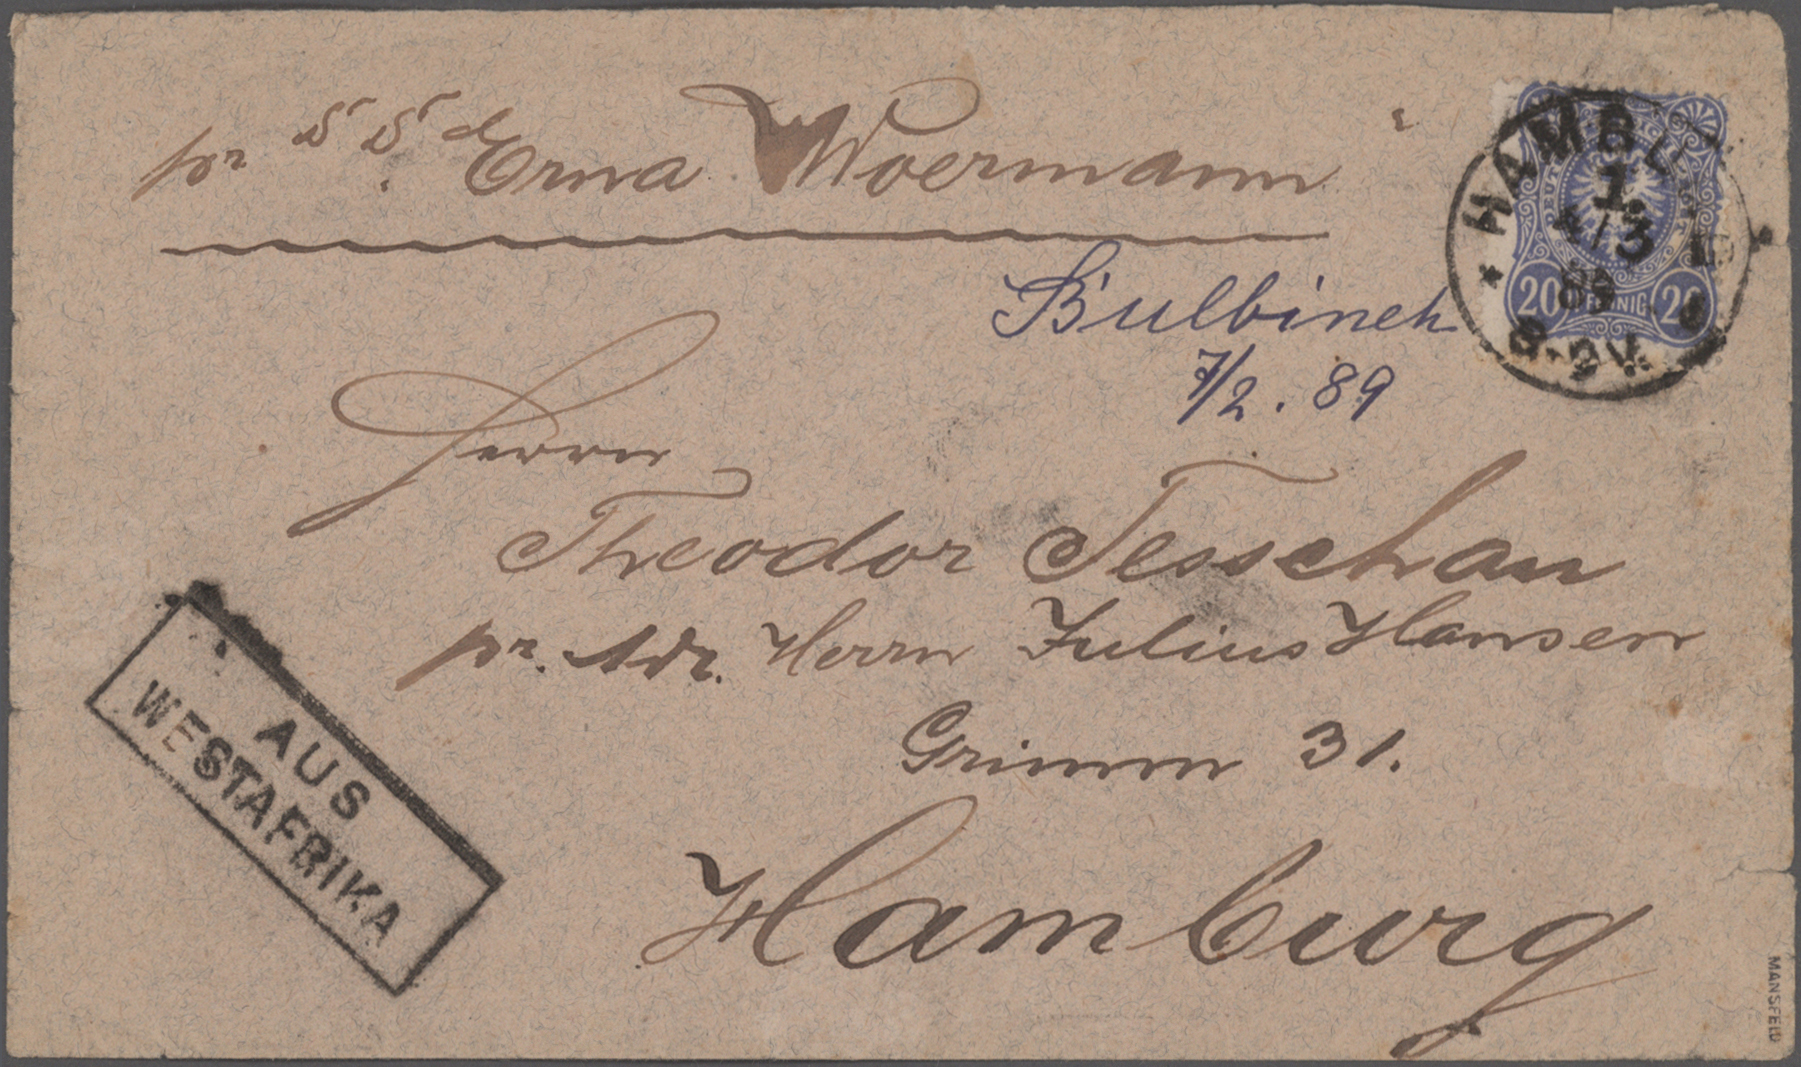 pr S. S. Erna Woermann
HAMBURG
1.
4/3
89
8-9V.
20 PFENNIG 20
Bulbineh
7/2. 89
Herrn
Theodor Tesschau
pr. Adr. Herrn Julius Hansen
Grimm 31.
Hamburg
AUS
WESTAFRIKA
MANSFELD